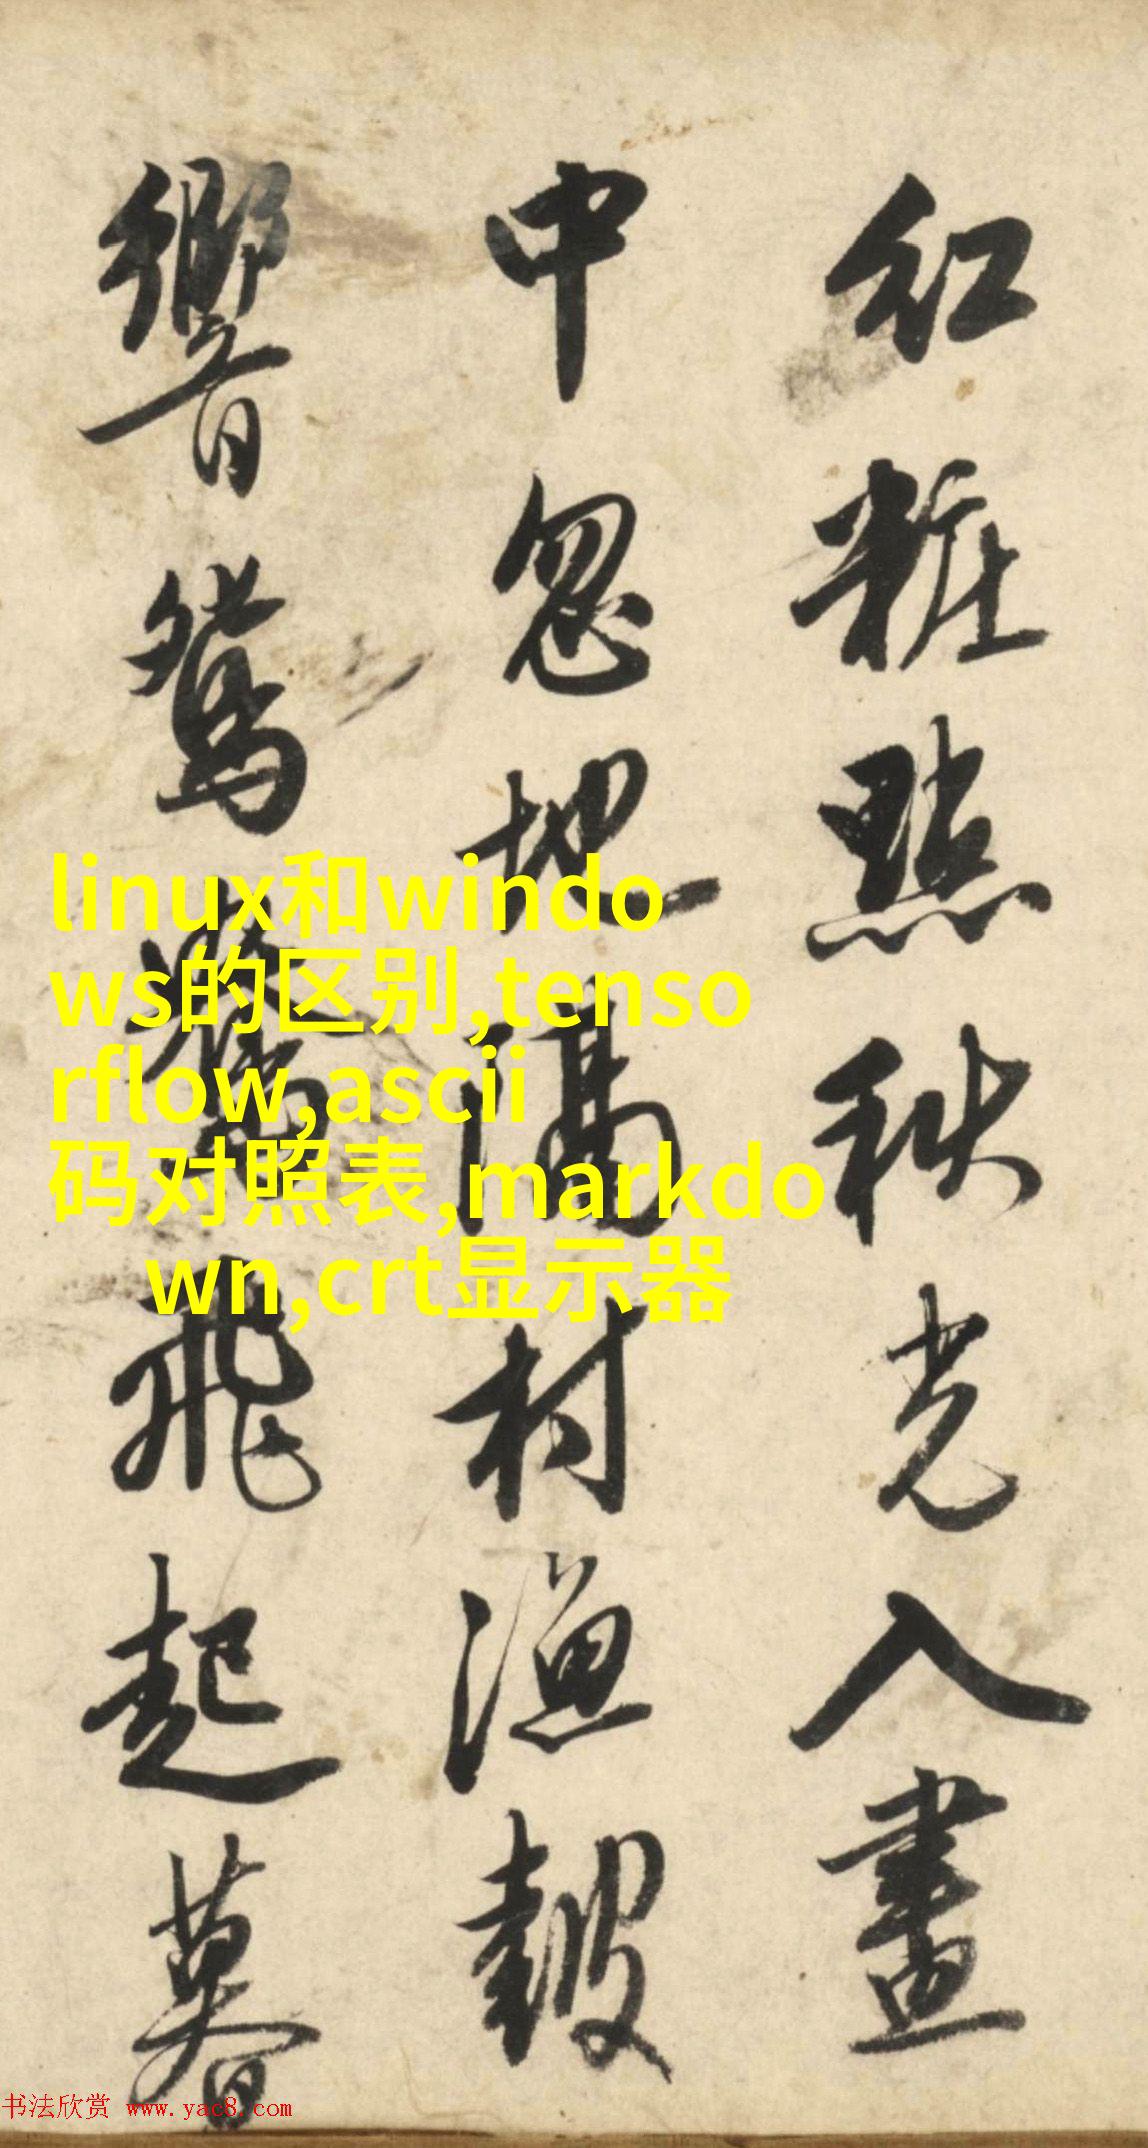 红粧點秋光入畫
中忽地隔村漁鼓
響鴛鴦飛起暮
linux和windo
ws的区别,tenso
rflow,ascii
码对照表,markdo
wn,crt显示器
书法欣赏 www.yac8.com